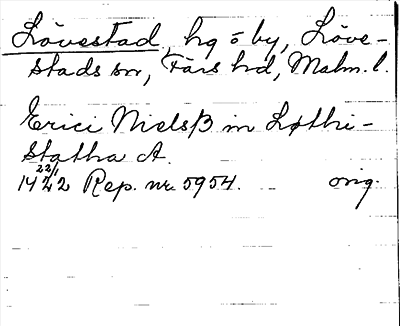 Lövestad, hg o by, Löve-
stads sn, Färs hd, Malm. l.
Erici Nielsß in Løthi-
statha A.
22/1
1442 Rep. nr. 5954. orig.